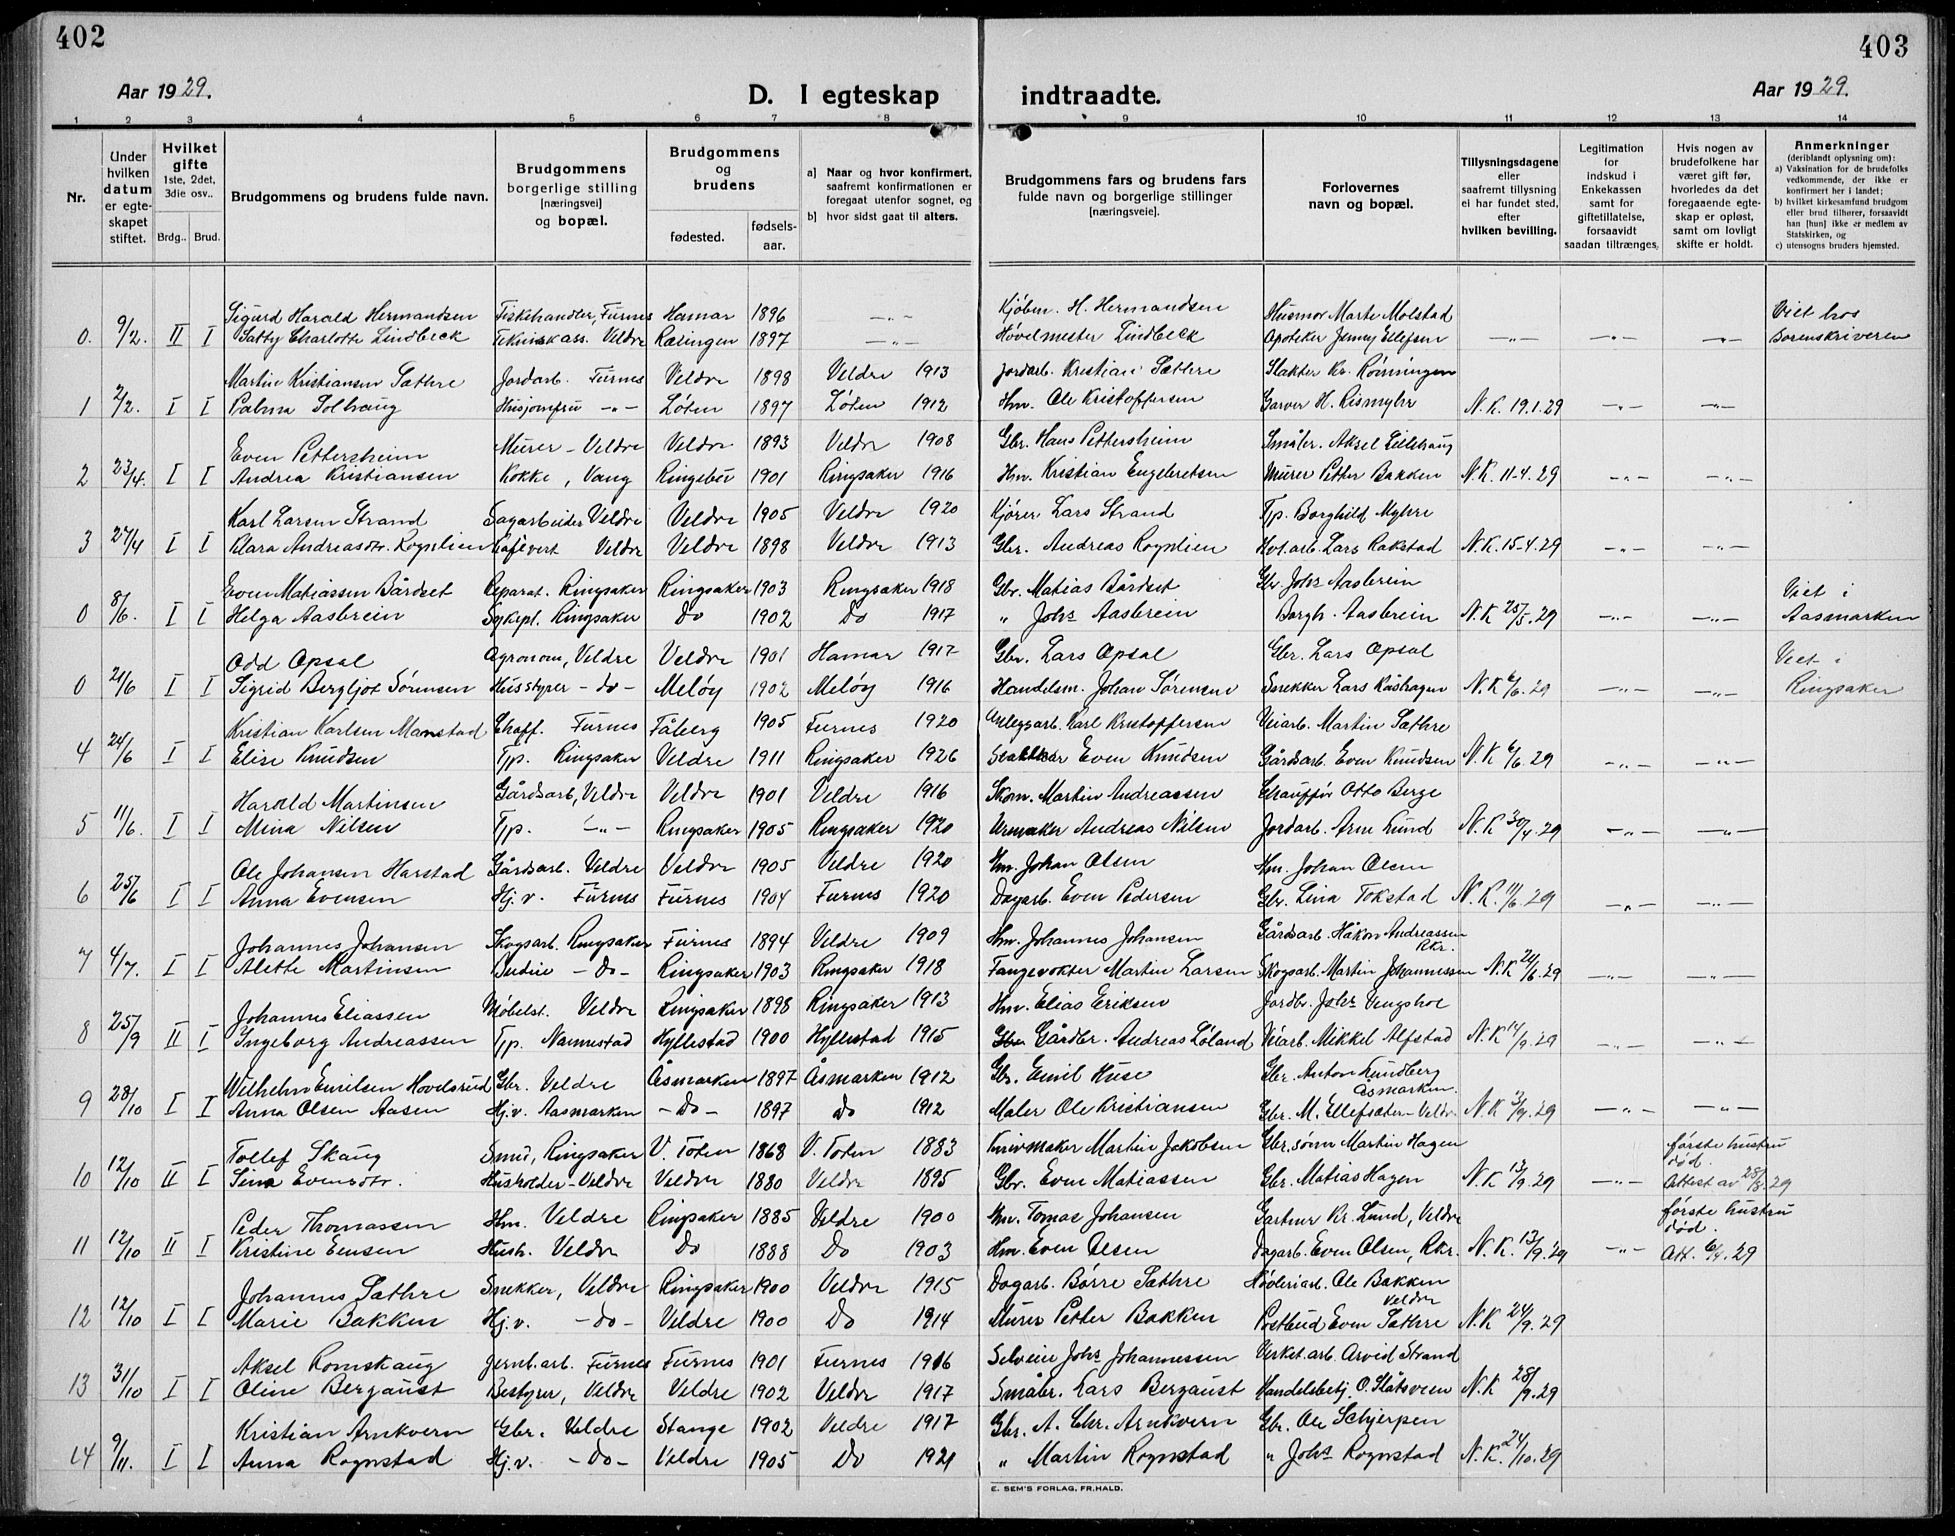 402
403
Aar 1929.
D. I egteskap
indtraadte.
Aar 1929.
1 2 3 4 5 6 7 8 9 10 11 12 13 14
Nr.
Under hvilken datum er egteskapet stiftet.
Hvilket gifte 1ste, 2det, 3die osv..
Brdg..
Brud.
Brudgommens og brudens fulde navn.
Brudgommens borgerlige stilling [næringsvei] og bopæl.
Brudgommens og brudens
fødested.
fødselsaar.
a] Naar og hvor konfirmert, saafremt konfirmationen er foregaat utenfor sognet, og
b] hvor sidst gaat til alters.
Brudgommens fars og brudens fars fulde navn og borgerlige stillinger [næringsveie].
Forlovernes navn og bopæl.
Tillysningsdagene eller saafremt tillysning ei har fundet sted, efter hvilken bevilling.
Legitimation for indskud i Enkekassen samt for giftetillatelse, forsaavidt saadan tiltrænges.
Hvis nogen av brudefolkene har været gift før, hvorledes da det foregaaende egteskap er opløst, samt om lovligt skifte er holdt.
Anmerkninger (deriblandt oplysning om):
a) Vaksination for de brudefolks vedkommende, der ikke er konfirmert her i landet;
b) hvilket kirkesamfund brudgom eller brud tilhører, forsaavidt han [hun] ikke er medlem av Statskirken, og
c) utensogns bruders hjemsted.
Sigurd Harald Hermandsen Fiskehandler, Furnes Hamar 1896 -"- Kjøbm. H. Hermandsen Husmor Marte Molstad Viet hos
0. 9/2. II I Satty Charlotte Lindbeck Teknisk ass. Veldre Ræringen 1897 -"- Høvelmester Lindbeck Apoteker Jenny Ellefsen -"- -"- -"- Sorenskriveren
Martin Kristiansen Sathre Jordarb. Furnes Veldre 1898 Veldre 1913 Jordarb. Kristian Sæthre Slakter Kr. Rønningen
1 2/2. I I Palma Solhaug Husjomfru -"- Løten 1897 Løten 1912 Hm. Ole Kristoffersen Garver H. Rismyhr N.K. 19.1.29 -"- -"-
Even Pettersheim Murer - Veldre Veldre 1893 Veldr 1908 Gbr. Hans Pettersheim Småbr. Aksel Lillehaug
2 23/4. I I Andrea Kristiansen Kokke, Vang Ringebu 1901 Ringsaker 1916 Hm. Kristian Engebretsen Murer Petter Bakken N.K. 11-4.29 -"- -"-
Karl Larsen Strand Sagarbeider Veldre Veldre 1905 Veldre 1920 Kjører Lars Strand Tjp. Borghild Myhre
3 27/4 I I Klara Andreasdtr. Rognlien Kafévert Veldre Veldre 1898 Veldre 1913 Gbr. Andreas Rognlien Hvl.arb. Lars Rakstad N.K. 15-4.29 -"- -"-
Even Matiassen Bårdset Reparat. Ringsaker Ringsaker 1903 Ringsaker 1918 Gbr. Matias Bårdset Gbr Johs Aasbrein Viet i
0 8/6. I I Helga Aasbrein Sykepl. Ringsaker Do 1902 Do 1917 " Johs Aasbrein Borgh. Aasbrein N.K 25/5.29 -"- -"- Aasmarken
Odd Opsal Agronom, Veldre Veldre 1901 Hamar 1917 Gbr. Lars Opsal Gbr. Lars Opsal Viet i
0 21/6 I I Sigrid Bergljot Sørensen Husstyrer - do - Meløy 1902 Meløy 1916 Handelsm. Johan Sørensen Snekker Lars Kåshagen N.K 6/6.29 -"- -"- Ringsaker
Kristian Karlsen Manstad Chaff. Furnes Fåberg 1905 Furnes 1920 Anleggarb. Karl Kristoffersen Veiarb. Martin Sathre
4 24/6 I I Elise Knudsen Tjp. Ringsaker Veldre 1911 Ringsaker 1926 Slakter Even Knudsen Gårdsarb. Even Knudsen N.K 6/6.29 -"- -"-
Harald Martinsen Gårdsarb, Veldre Veldre 1901 Veldre 1916 Skom. Martin Andreassen Chauffør Otto Berge
5 11/6. I I Mina Nilsen Tjp. -"- Ringsaker 1905 Ringsaker 1920 Urmaker Andreas Nilsen Jordarb. Arne Lund N.K 30/4.29 -"- -"-
Ole Johansen Harstad Gårdsarb. Veldre Veldre 1905 Veldre 1920 Hm. Johan Olsen Hm. Johan Olsen
6 25/6 I I Anna Evensen Hj.v. Furnes Furnes 1904 Furnes 1920 Dagarb. Even Pedersen Gbr. Lina Tokstad N.K. 11/6.29 -"- -"-
Johannes Johansen Skogsarb. Ringsaker Furnes 1894 Veldre 1909 Hm. Johannes Johansen Gårdsarb. Håkon Andreassen Rkr.
7 4/7. I I Alette Martinsen Budeie - do - Ringsaker 1903 Ringsaker 1918 Fangevokter Martin Larsen Skogsarb. Martin Johannessen N.K 24/6.29 -"- -"-
Johannes Eliassen Møbelst. Veldre Ringsaker 1898 Ringsaker 1913 Hm. Elias Eriksen Jordbr. Johs Vengshol
8 25/9 II I Ingeborg Andreassen Tjp. Nannestad Hyllestad 1900 Hyllestad 1915 Gårdbr. Andreas Løland Veiarb. Mikkel Alfstad N.K 14/9.29 -"- -"-
Wilhelm Emilsen Hovelsrud Gbr. Veldre Åsmarken 1897 Åsmarken 1912 Gbr. Emil Huse Gbr. Anton Lundberg Åsmarken.
9 28/10 I I Anna Olsen Aasen Hj.v. Aasmarken - Do - 1897 do 1912 Maler Ole Kristiansen Gbr. M. Ellefsæter - Veldr N.K 3/9.29 -"- -"-
Tollef Skaug Smed, Ringsaker V. Toten 1868 V. Toten 1883 Knivmaker Martin Jakobsen Gbr.sønn Martin Hagen første hustru død.
10 12/10 II I Sina Evensdtr. Husholder - Veldre Veldre 1880 Veldre 1895 Gbr. Even Matiassen Gbr. Matias Hagen N.K 13/9.29 -"- Attest av 28/8.29
Peder Thomassen Hm. Veldre Ringsaker 1885 Veldre 1900 Hm. Tomas Johansen Gartner Kr. Lund, Veldre første hustru død.
11 12/10 II I Kristine Evensen Hush. Veldre Do 1888 Do 1903 Hm. Even Olsen Dagarb. Even Olsen, Rkr. N.K. 13/9.29 -"- Att. 6/4.29
Johannes Sathre Snekker, Veldre Ringsaker 1900 Veldre 1915 Dagarb. Børre Sathre Høvleriarb. Ole Bakken Veldre
12 12/10 I I Marie Bakken Hj.v. - do - Veldre 1900 Do 1914 Murer Petter Bakken Postbud Even Sathre N.K 24/9.29
Aksel Romskaug Jernb.arb. Furnes Furnes 1901 Furnes 1916 Selveier Johs Johannessen Verkst.arb. Arvid Strand
13 31/10 I I Oline Bergaust Bestyrer, Veldre Veldre 1902 Veldre 1917 Småbr. Lars Bergaust Handelsbetj. O. Slåtsveen N.K 28/9.29
Kristian Arnkvern Gbr. Veldre Stange 1902 Veldre 1917 Gbr. A. Chr. Arnkvern Gbr. Ole Schjerpen
14 9/11. I I Anna Rognstad Hj.v. - Do - Veldre 1905 Do 1921 " Martin Rognstad " Johs Rognstad N.K. 24/10.29
E. SEM'S FORLAG, FR.HALD.